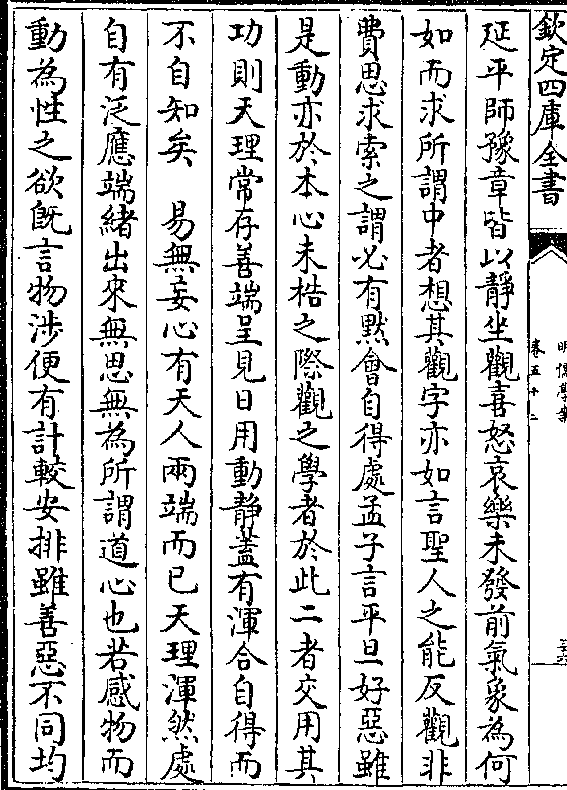 欽定四庫全書
明儒學案
卷五十二
延平師豫章皆以靜坐觀喜怒哀樂未發前氣象為何
如而求所謂中者想其觀字亦如言聖人之能反觀非
費思求索之謂必有黙會自得處孟子言平旦好惡雖
是動亦於本心未梏之際觀之學者於此二者交用其
功則天理常存善端呈見日用動靜蓋有渾合自得而
不自知矣 易無妄心有天人兩端而已天理渾然處
自有泛應端緒出來無思無為所謂道心也若感物而
動為性之欲既言物涉便有計較安排雖善惡不同均